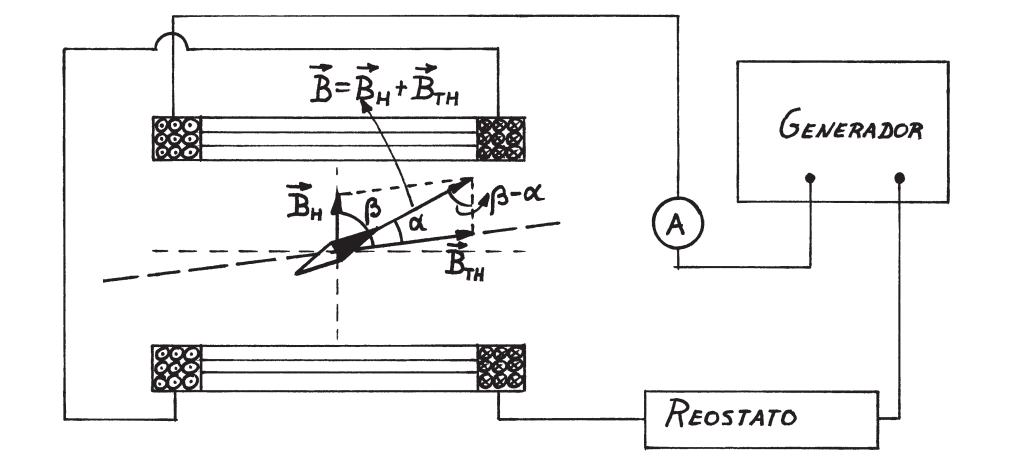 B⃗=B⃗H+B⃗TH
GENERADOR
B⃗H
β
α
β-α
B⃗TH
A
REOSTATO